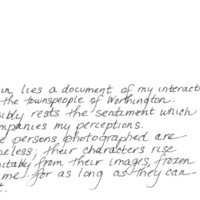 in lies a document of my interact
the townspeople of Worthington.
ibly rests the sentiment which
mpanies my perceptions.
e persons photographed are
eless; their characters rise
itably from their images, frozen
me for as long as they can
t.